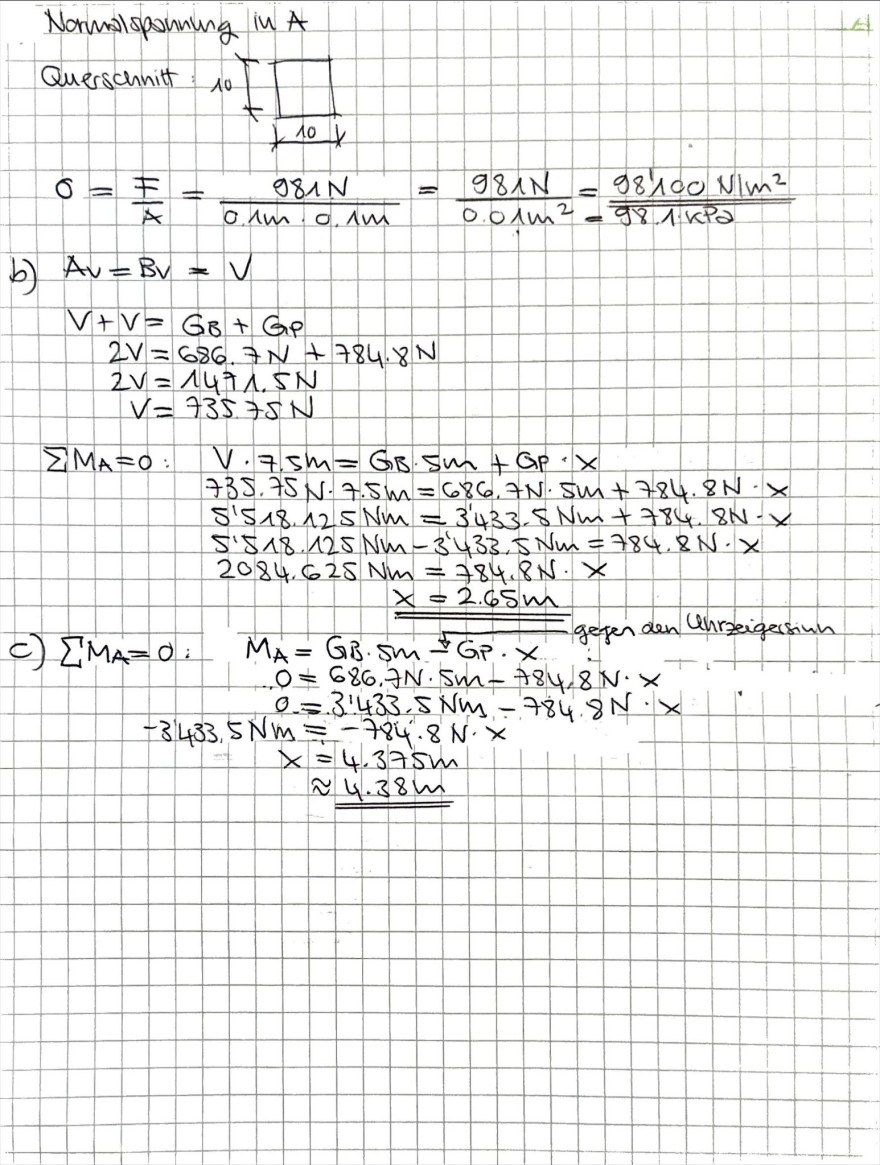 Normalspannung in A
Querschnitt: 10
10
σ = F/A = 981N / 0.1m · 0.1m = 981N / 0.01m² = 98'100 N/m²
= 98.1 kPa
b) Av = Bv = V
V + V = GB + GP
2V = 686.7N + 784.8N
2V = 1471.5N
V = 735.75N
ΣMA=0: V · 7.5m = GB · 5m + GP · x
735.75N · 7.5m = 686.7N · 5m + 784.8N · x
5'518.125 Nm = 3'433.5 Nm + 784.8N · x
5'518.125 Nm - 3'433.5 Nm = 784.8N · x
2084.625 Nm = 784.8N · x
x = 2.65m
gegen den Uhrzeigersinn
c) ΣMA=0: MA = GB · 5m - GP · x
0 = 686.7N · 5m - 784.8N · x
0 = 3'433.5 Nm - 784.8N · x
-3'433.5 Nm = -784.8N · x
x = 4.375m
≈ 4.38m